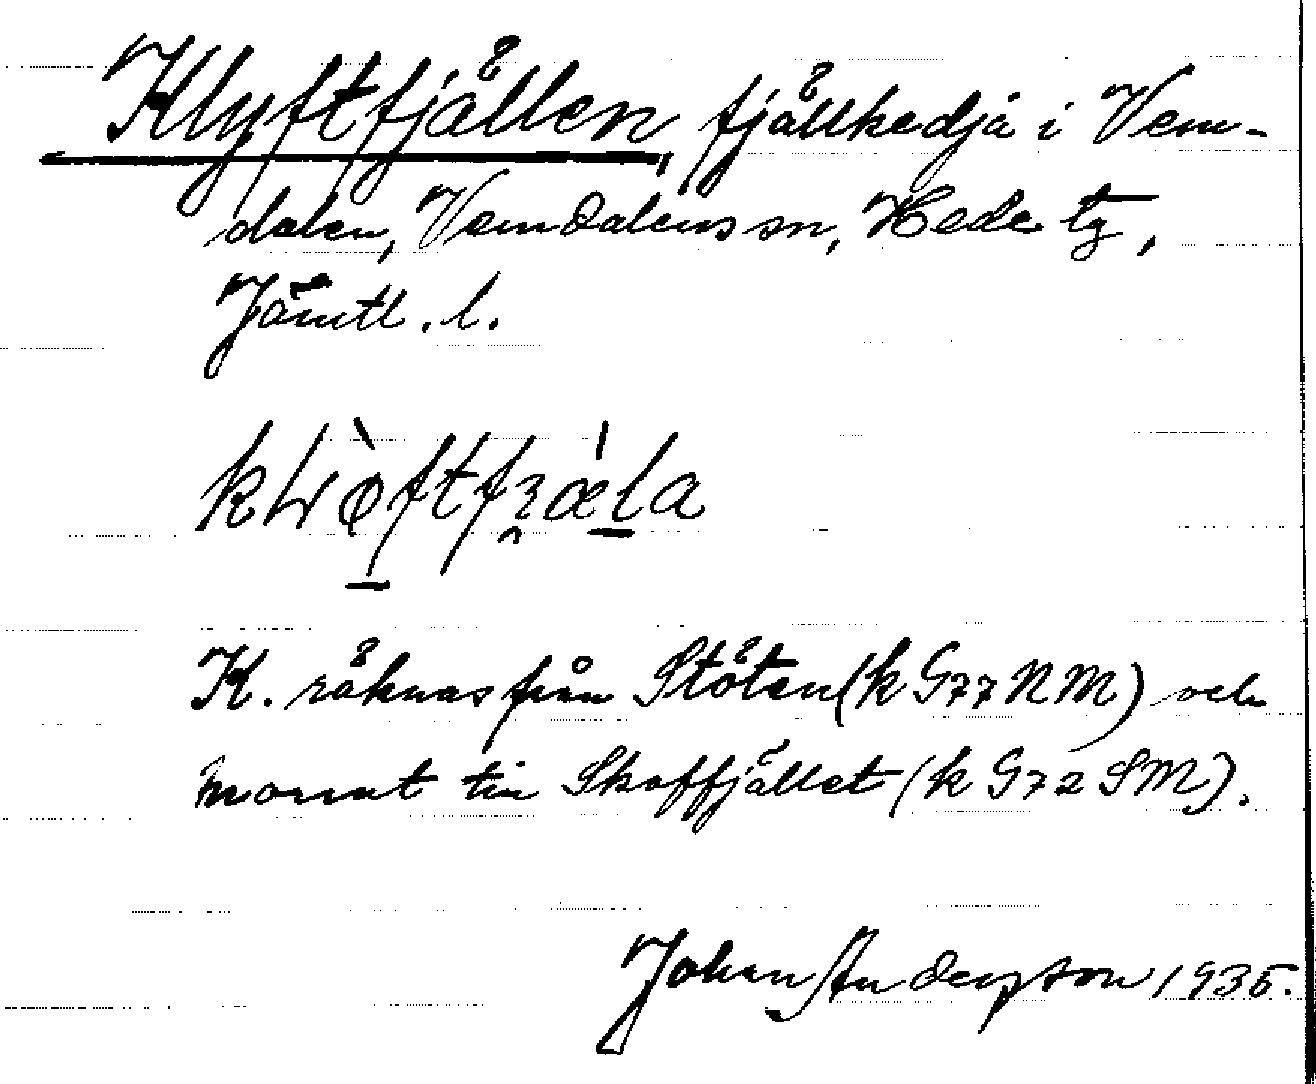 Klyftfjällen, fjällkedja i Vem-
dalen, Vemdalens sn, Hede tg,
Jämtl. l.
K. räknas från Stöten (k G77 NM) och
norrut till Skaffjället (k G72 SM).
Johan Anderzson 1935.